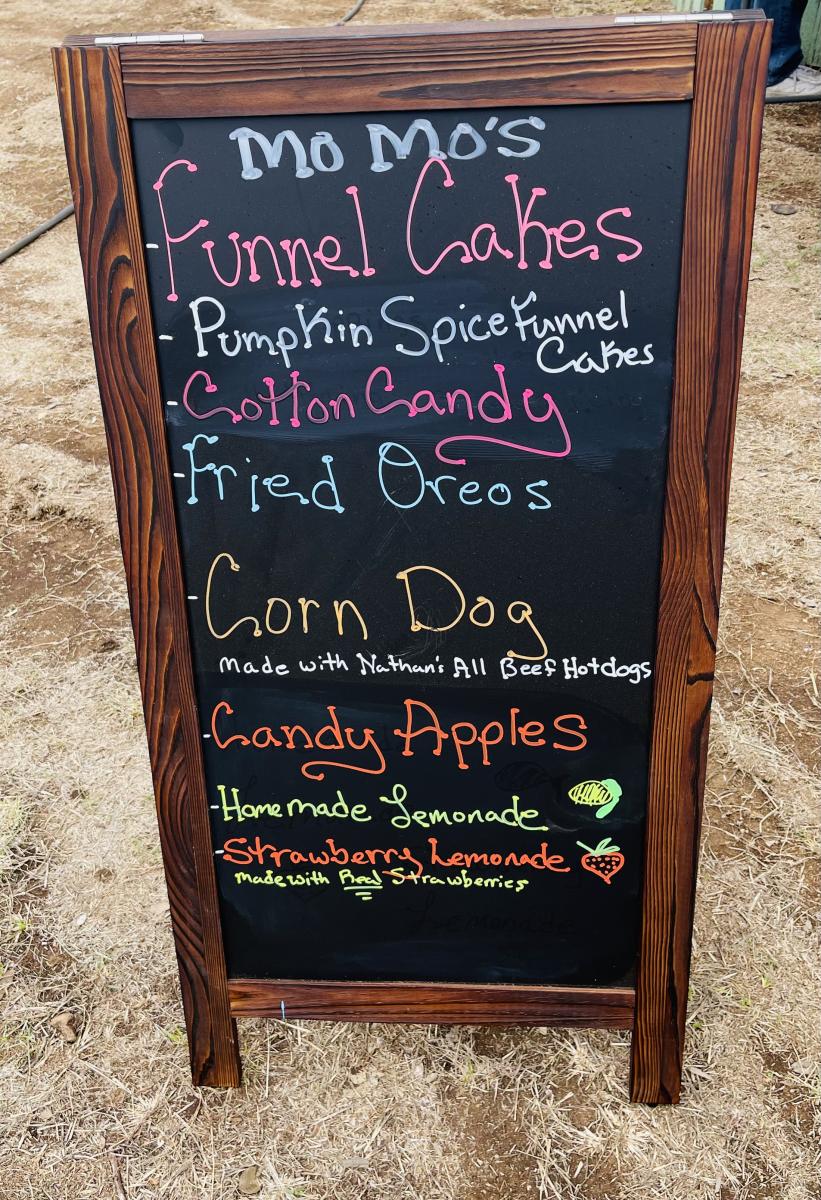 Mo Mo's
- Funnel Cakes
- Pumpkin Spice Funnel
Cakes
- Cotton Candy
- Fried Oreos
- Corn Dog
made with Nathan's All Beef Hotdogs
- Candy Apples
- Homemade Lemonade
- Strawberry Lemonade
made with Real Strawberries
Lemonade